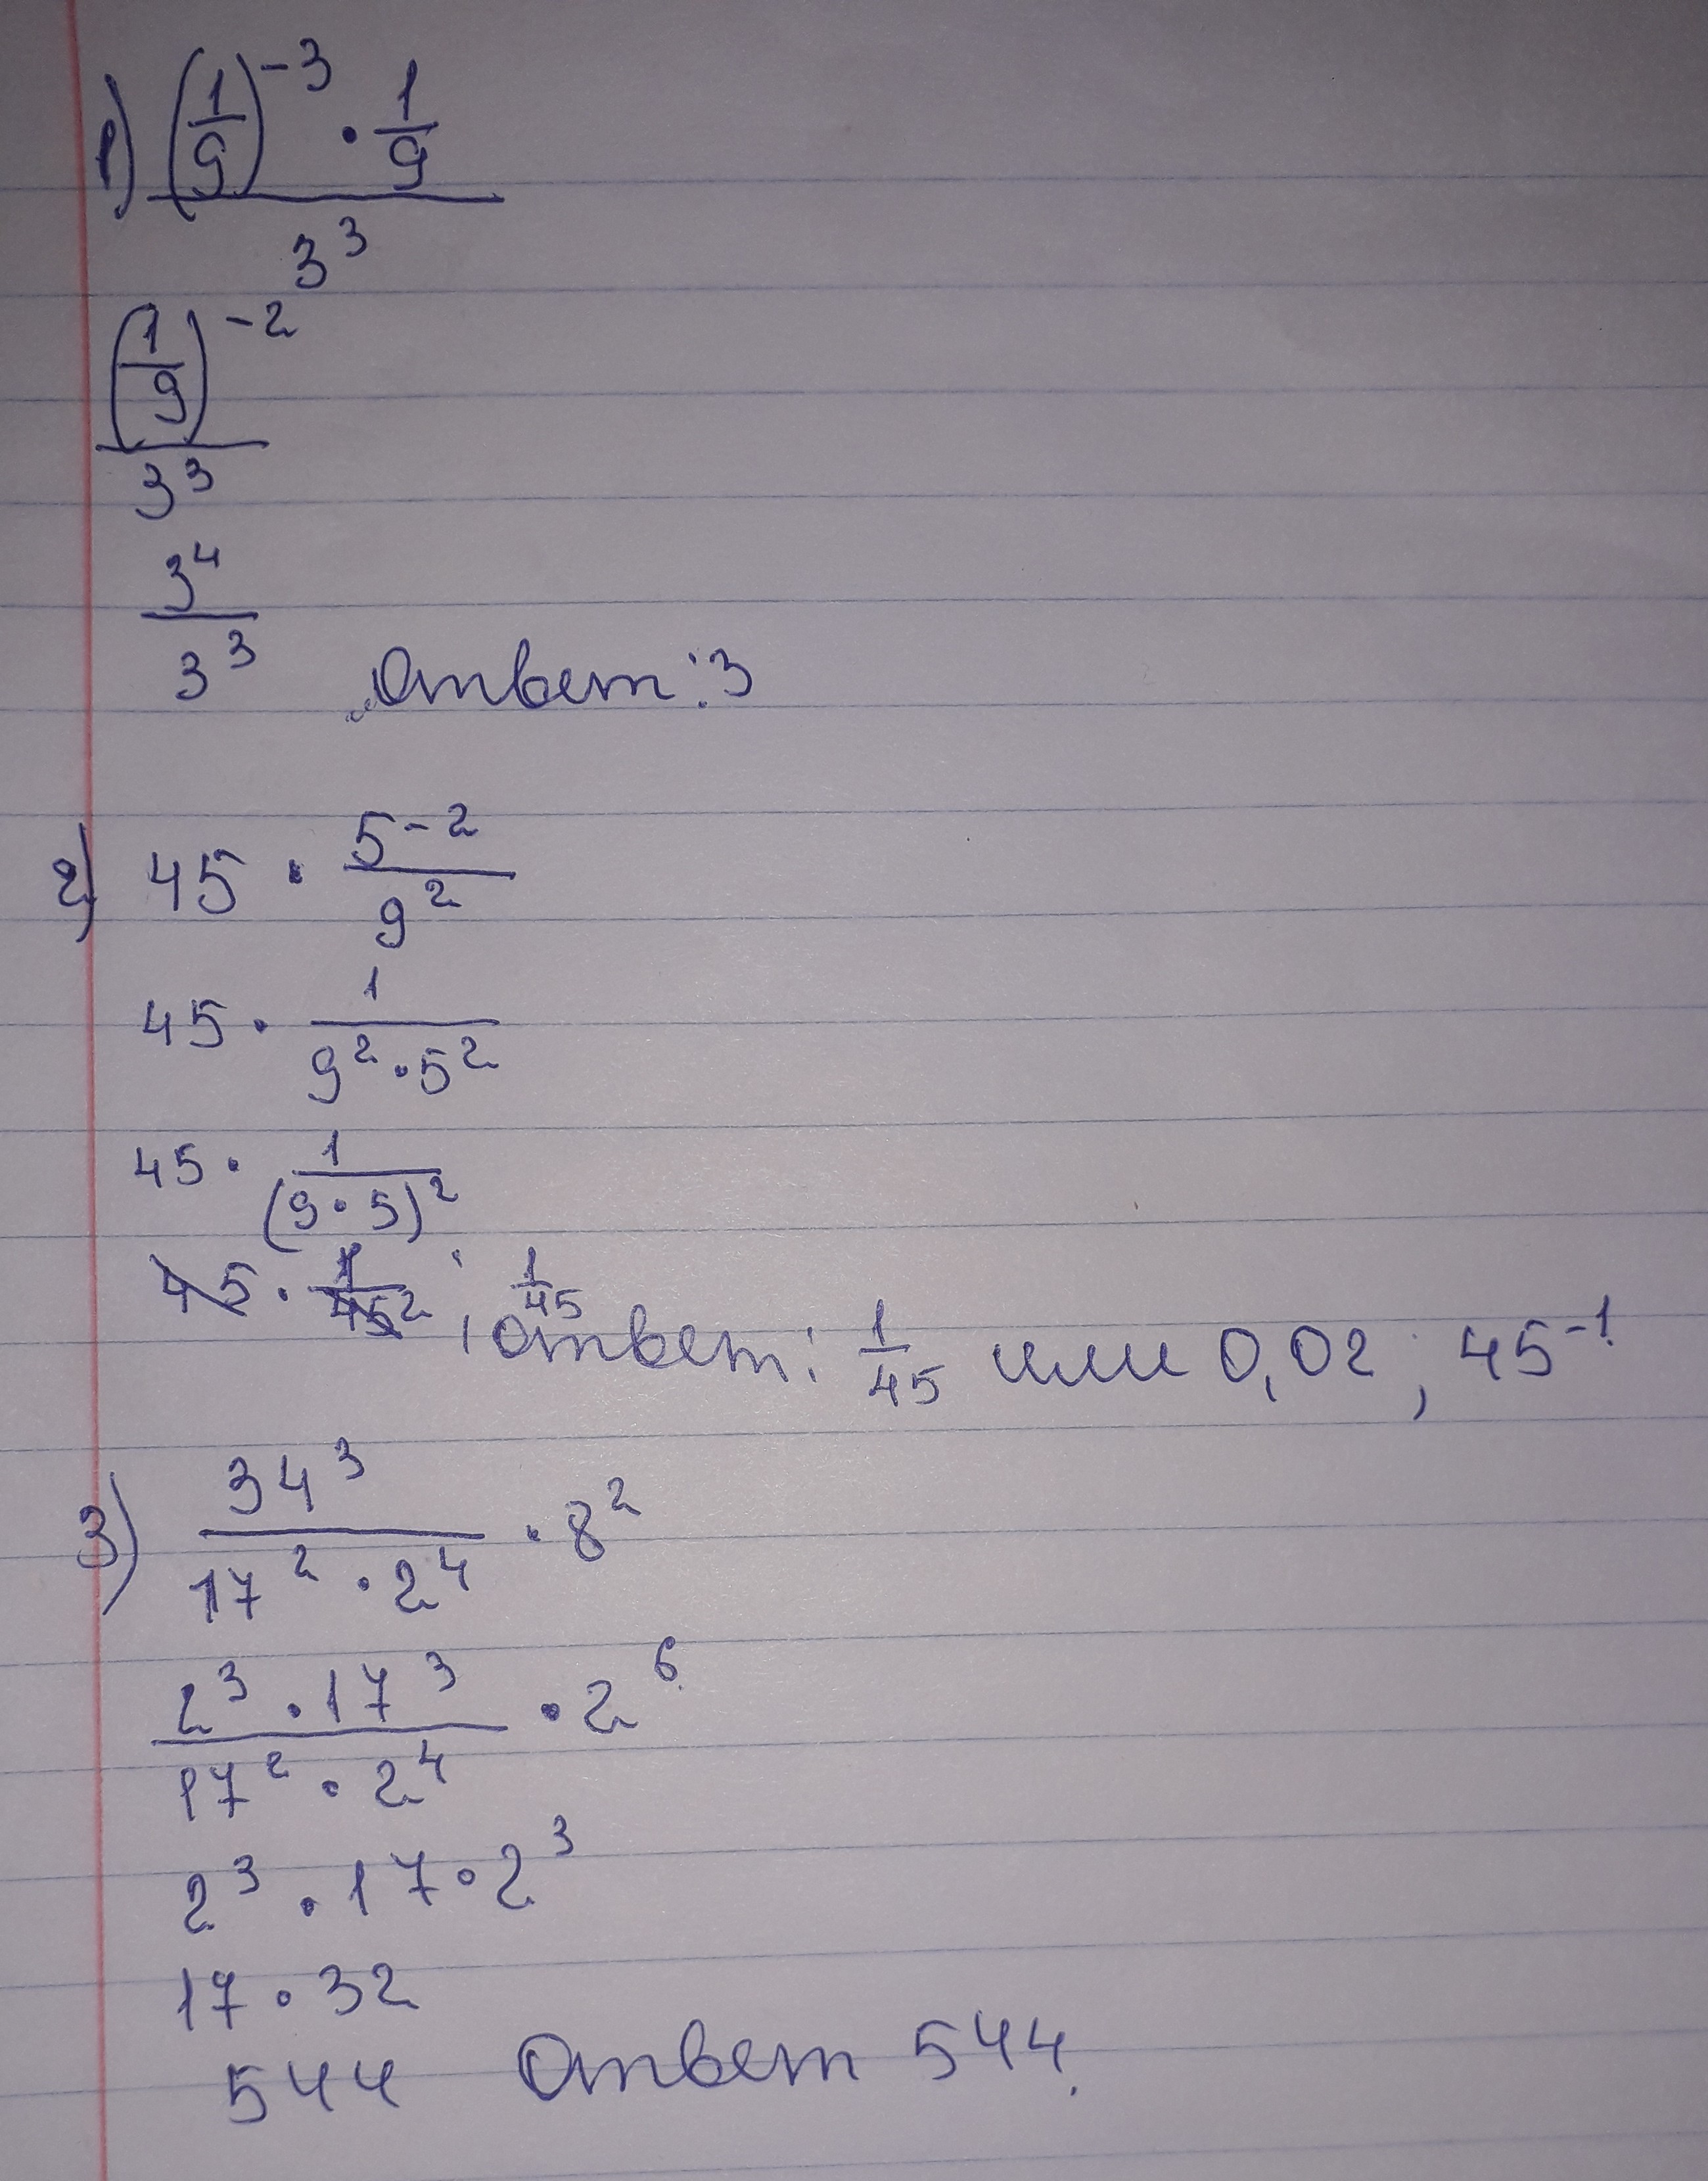 1) ((1/9)^-3 · 1/9) / 3^3
(1/9)^-2 / 3^3
3^4 / 3^3 Ответ: 3
2) 45 · 5^-2 / 9^2
45 · 1 / (9^2 · 5^2)
45 · 1 / (9 · 5)^2
45 · 1/45^2 ; 1/45
Ответ: 1/45 или 0,02 ; 45^-1
3) 34^3 / (17^2 · 2^4) · 8^2
(2^3 · 17^3) / (17^2 · 2^4) · 2^6
2^3 · 17 · 2^3
17 · 32
544 Ответ 544.